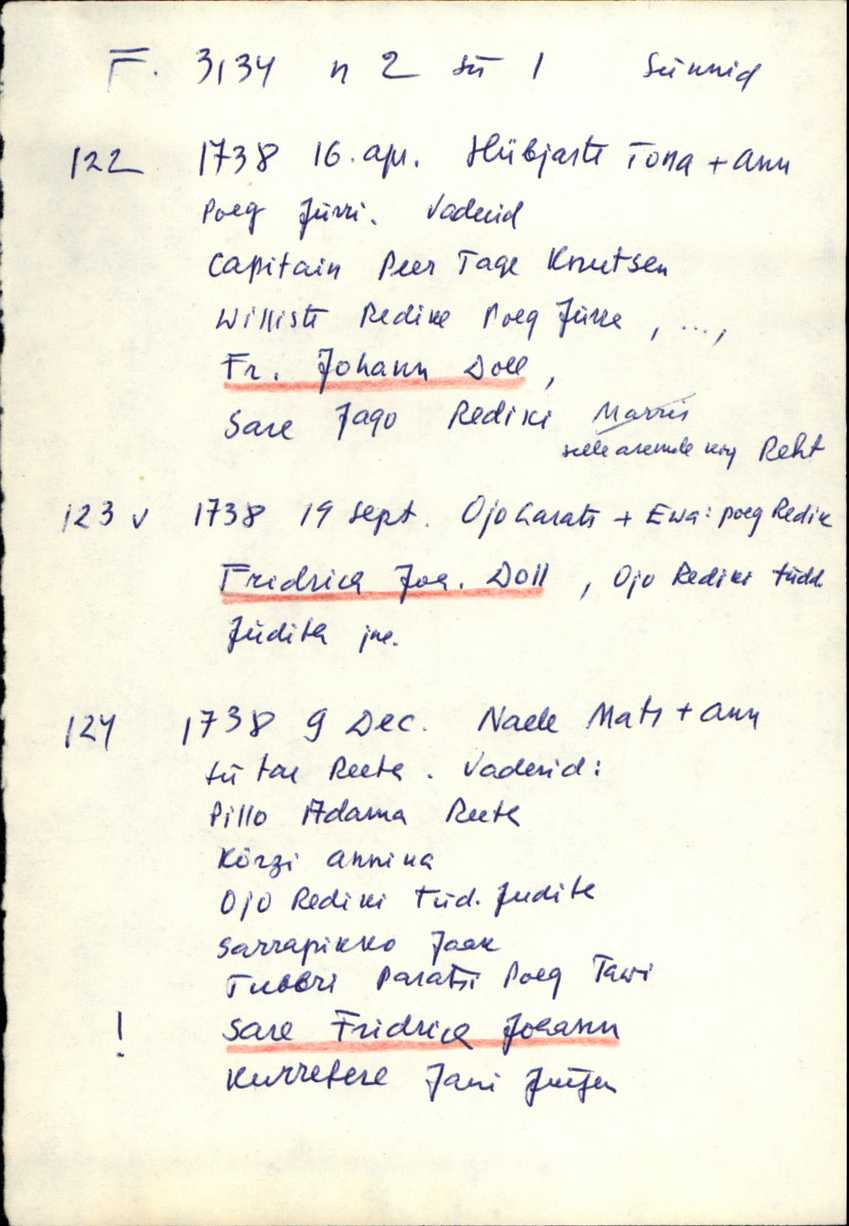 F. 3134 n 2 sü 1 Sünnid
122 1738 16. apr. Hübjasti Tona + Ann
Poeg Jürri. Vaderid
Capitain Peer Tage Knutsen
Willisti Redike Poeg Jürre , ...,
Fr. Johann Doll ,
Sare Jago Rediki Marris
selle asemele Reht
123 v 1738 19 sept. Ojo Larats + Ewa: poeg Redik
Fridrich Joh. Doll , Ojo Rediki tüdd.
Judith jne.
124 1738 9 Dec. Naele Mats + Ann
tütar Reeta . Vaderid:
Pillo Adama Reeta
Körzi Annika
Ojo Rediki tüd. Judith
Sarrapikko Jaak
Tubbri Paratsi Poeg Tawi
! Sare Fridrich Johann
Kurretere Jani